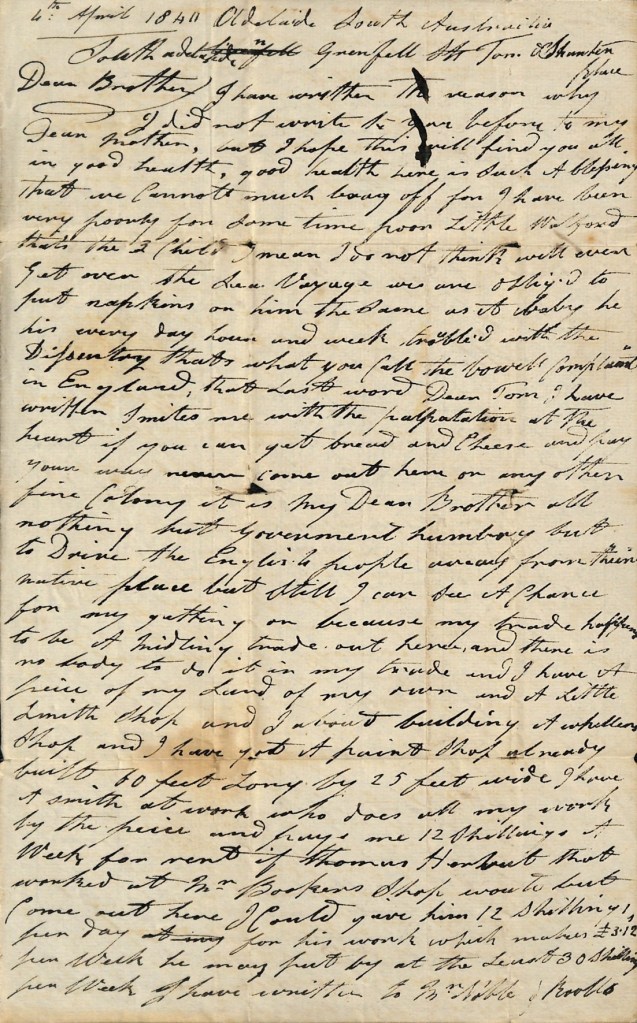 4th April 1840 Adelaide South Australia
South adelaide Grenfell St Tom O Shanter
place
Dear Brother I have written the reason why
I did not write to you before to my
Dear Mother, but I hope this will find you all
in good health, good health here is Such A blessing
that we Cannott much brag off for I have been
very poorly for Some time poor Little Walford
thats the 2 Child I mean I do not think will ever
Get over the Sea Voyage we are oblig'd to
put napkins on him the Same as A baby he
his every day hour and week trobl'd with the
Dissentry thats what you Call the bowell Complaint
in England, that Last word Dear Tom I have
written Smites me with the palpatation at the
heart if you can get bread and Cheese and pay
your way never come out here or any other
fine Colony it is my Dear Brother all
nothing but Government humbug but
to Drive the English people away from their
native place but Still I can See A Chance
for my getting on because my trade happens
to be A Midling trade out here, and there is
no body to do it in my trade and I have A
peice of my Land of my own and A Little
Smith Shop and I about building A whellers
Shop and I have got A paint Shop already
built 60 feet Long by 25 feet wide I have
A Smith at work who does all my work
by the peice and pays me 12 Shillings A
Week for rent if thomas Herbut that
worked at Mr Bookers Shop would but
Come out here I Could give him 12 Shillings
per day at my for his work which makes £3.12
per Week he may put by at the Least 30 Shilling
per Week I have written to Mr Noble